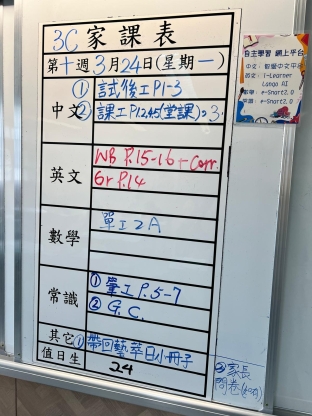 3C 家課表
第十週 3月24日(星期一)
中文
① 試後工P1-3
② 課工P1,2,4,5(堂課)。3.
英文
WB P.15-16 + Corr.
Gr P.14
數學
單工2A
常識
① 量工P.5-7
② G.C.
其它
① 帶回藝萃日小冊子
值日生
24
② 家長
問卷(4-9)
自主學習 網上平台
i-Learner
e-Smart2.0
e-Smart2.0